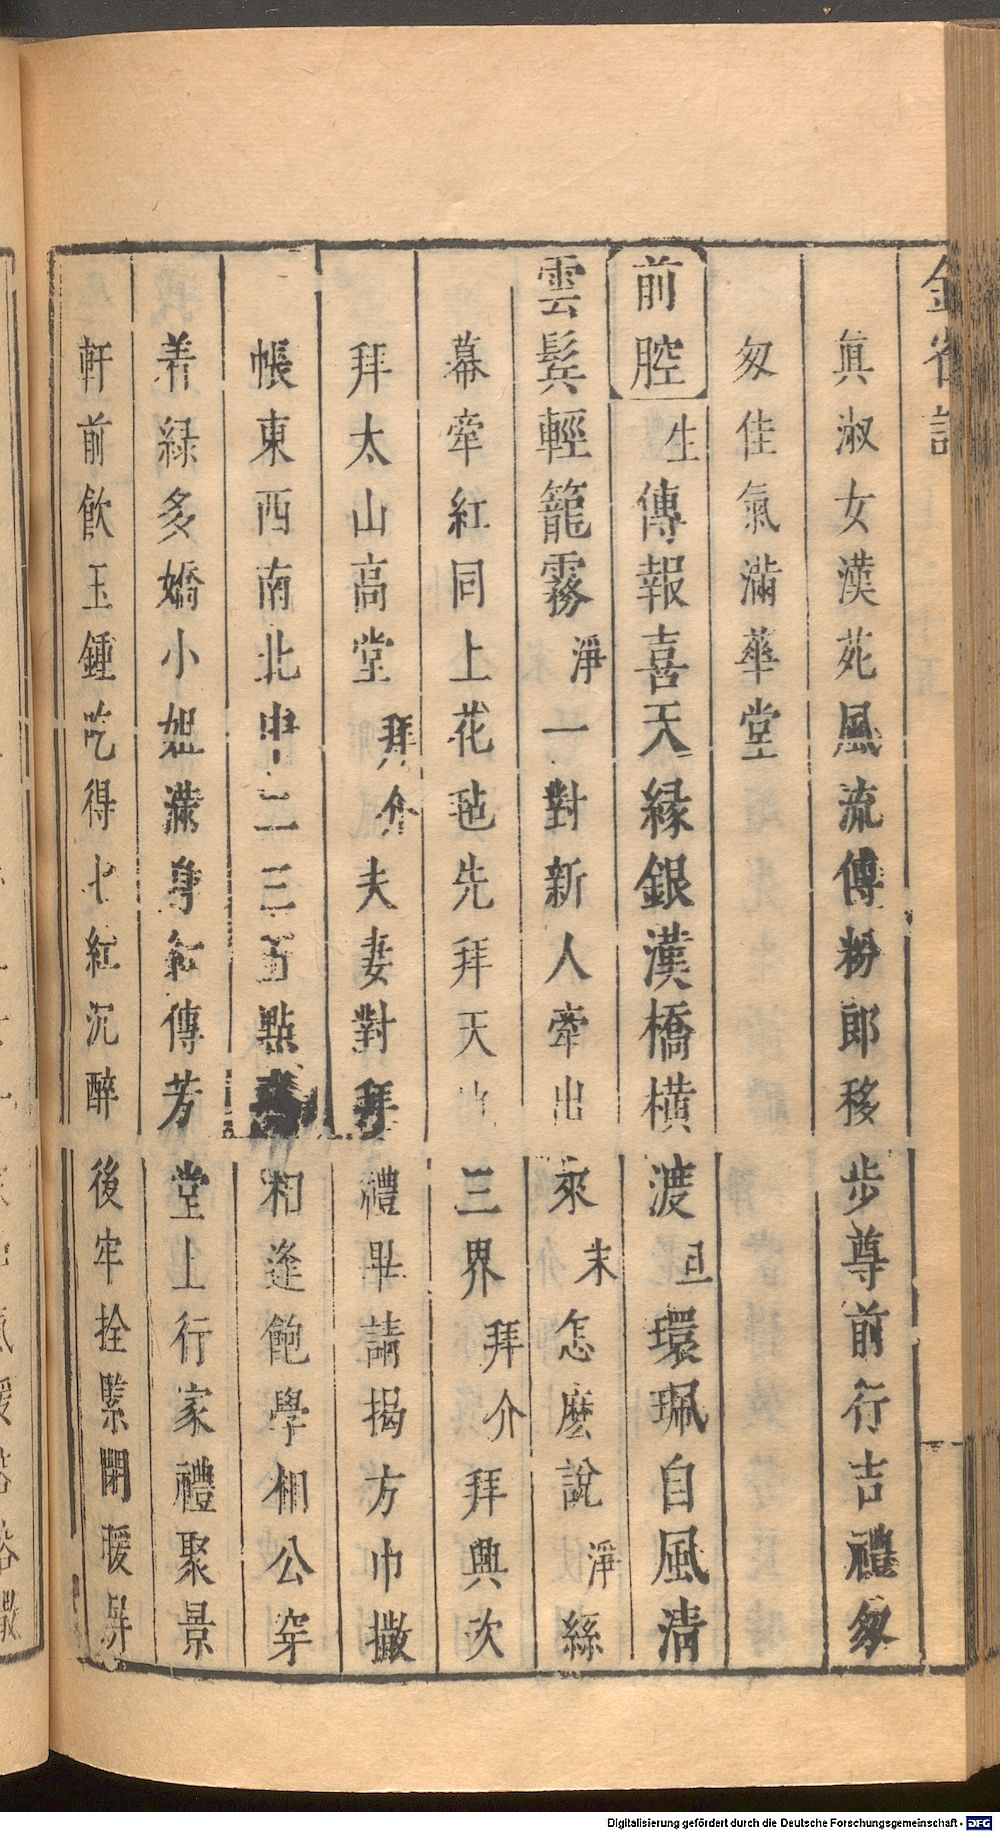 金雀記
真淑女漢苑風流傅粉郎移步尊前行吉禮匆
匆佳氣滿華堂
前腔 生 傳報喜天縁銀漢橋橫渡 旦 環珮自風清
雲鬂輕籠霧 淨 一對新人牽出來 末 怎麽說 淨 絲
幕牽紅同上花毡先拜天 三界 拜介 拜興次
拜太山高堂 拜介 夫妻對拜禮畢請揭方巾撒
帳東西南北中二三百點 相逢飽學相公穿
着緑多嬌小姐滿身紅傳芳堂上行家禮聚景
軒前飲玉鍾吃得七紅沉醉後牢拴緊閉暖屏
Digitalisierung gefördert durch die Deutsche Forschungsgemeinschaft - DFG